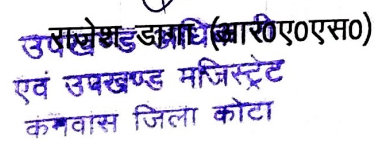 राजेश डागा (आर०ए०एस०)
उपखण्ड अधिकारी
एवं उपखण्ड मजिस्ट्रेट
कनवास जिला कोटा